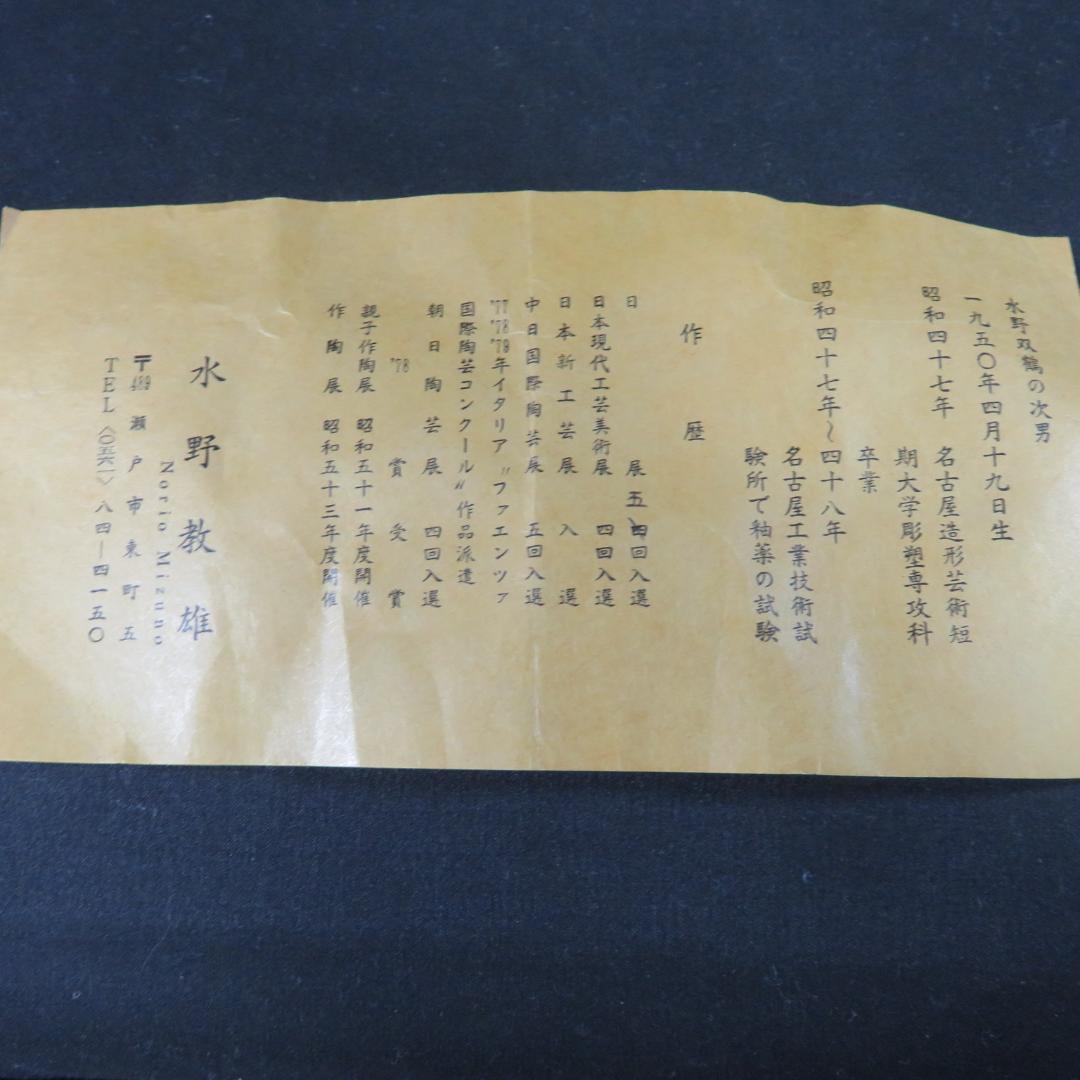 水野双鶴の次男
一九五〇年四月十九日生
昭和四十七年 名古屋造形芸術短
期大学彫塑専攻科
卒業
昭和四十七年～四十八年
名古屋工業技術試
験所で釉薬の試験
作歴
日展 五四回入選
日本現代工芸美術展 四回入選
日本新工芸展 入選
中日国際陶芸展 五回入選
'77 '78 '79年イタリア〝ファエンツァ
国際陶芸コンクール〟作品派遣
朝日陶芸展 四回入選
'78 賞受賞
親子作陶展 昭和五十一年度開催
作陶展 昭和五十三年度開催
水野教雄
Norio Mizuno
〒489 瀬戸市東町五
TEL〈〇五六一〉八四―四一五〇